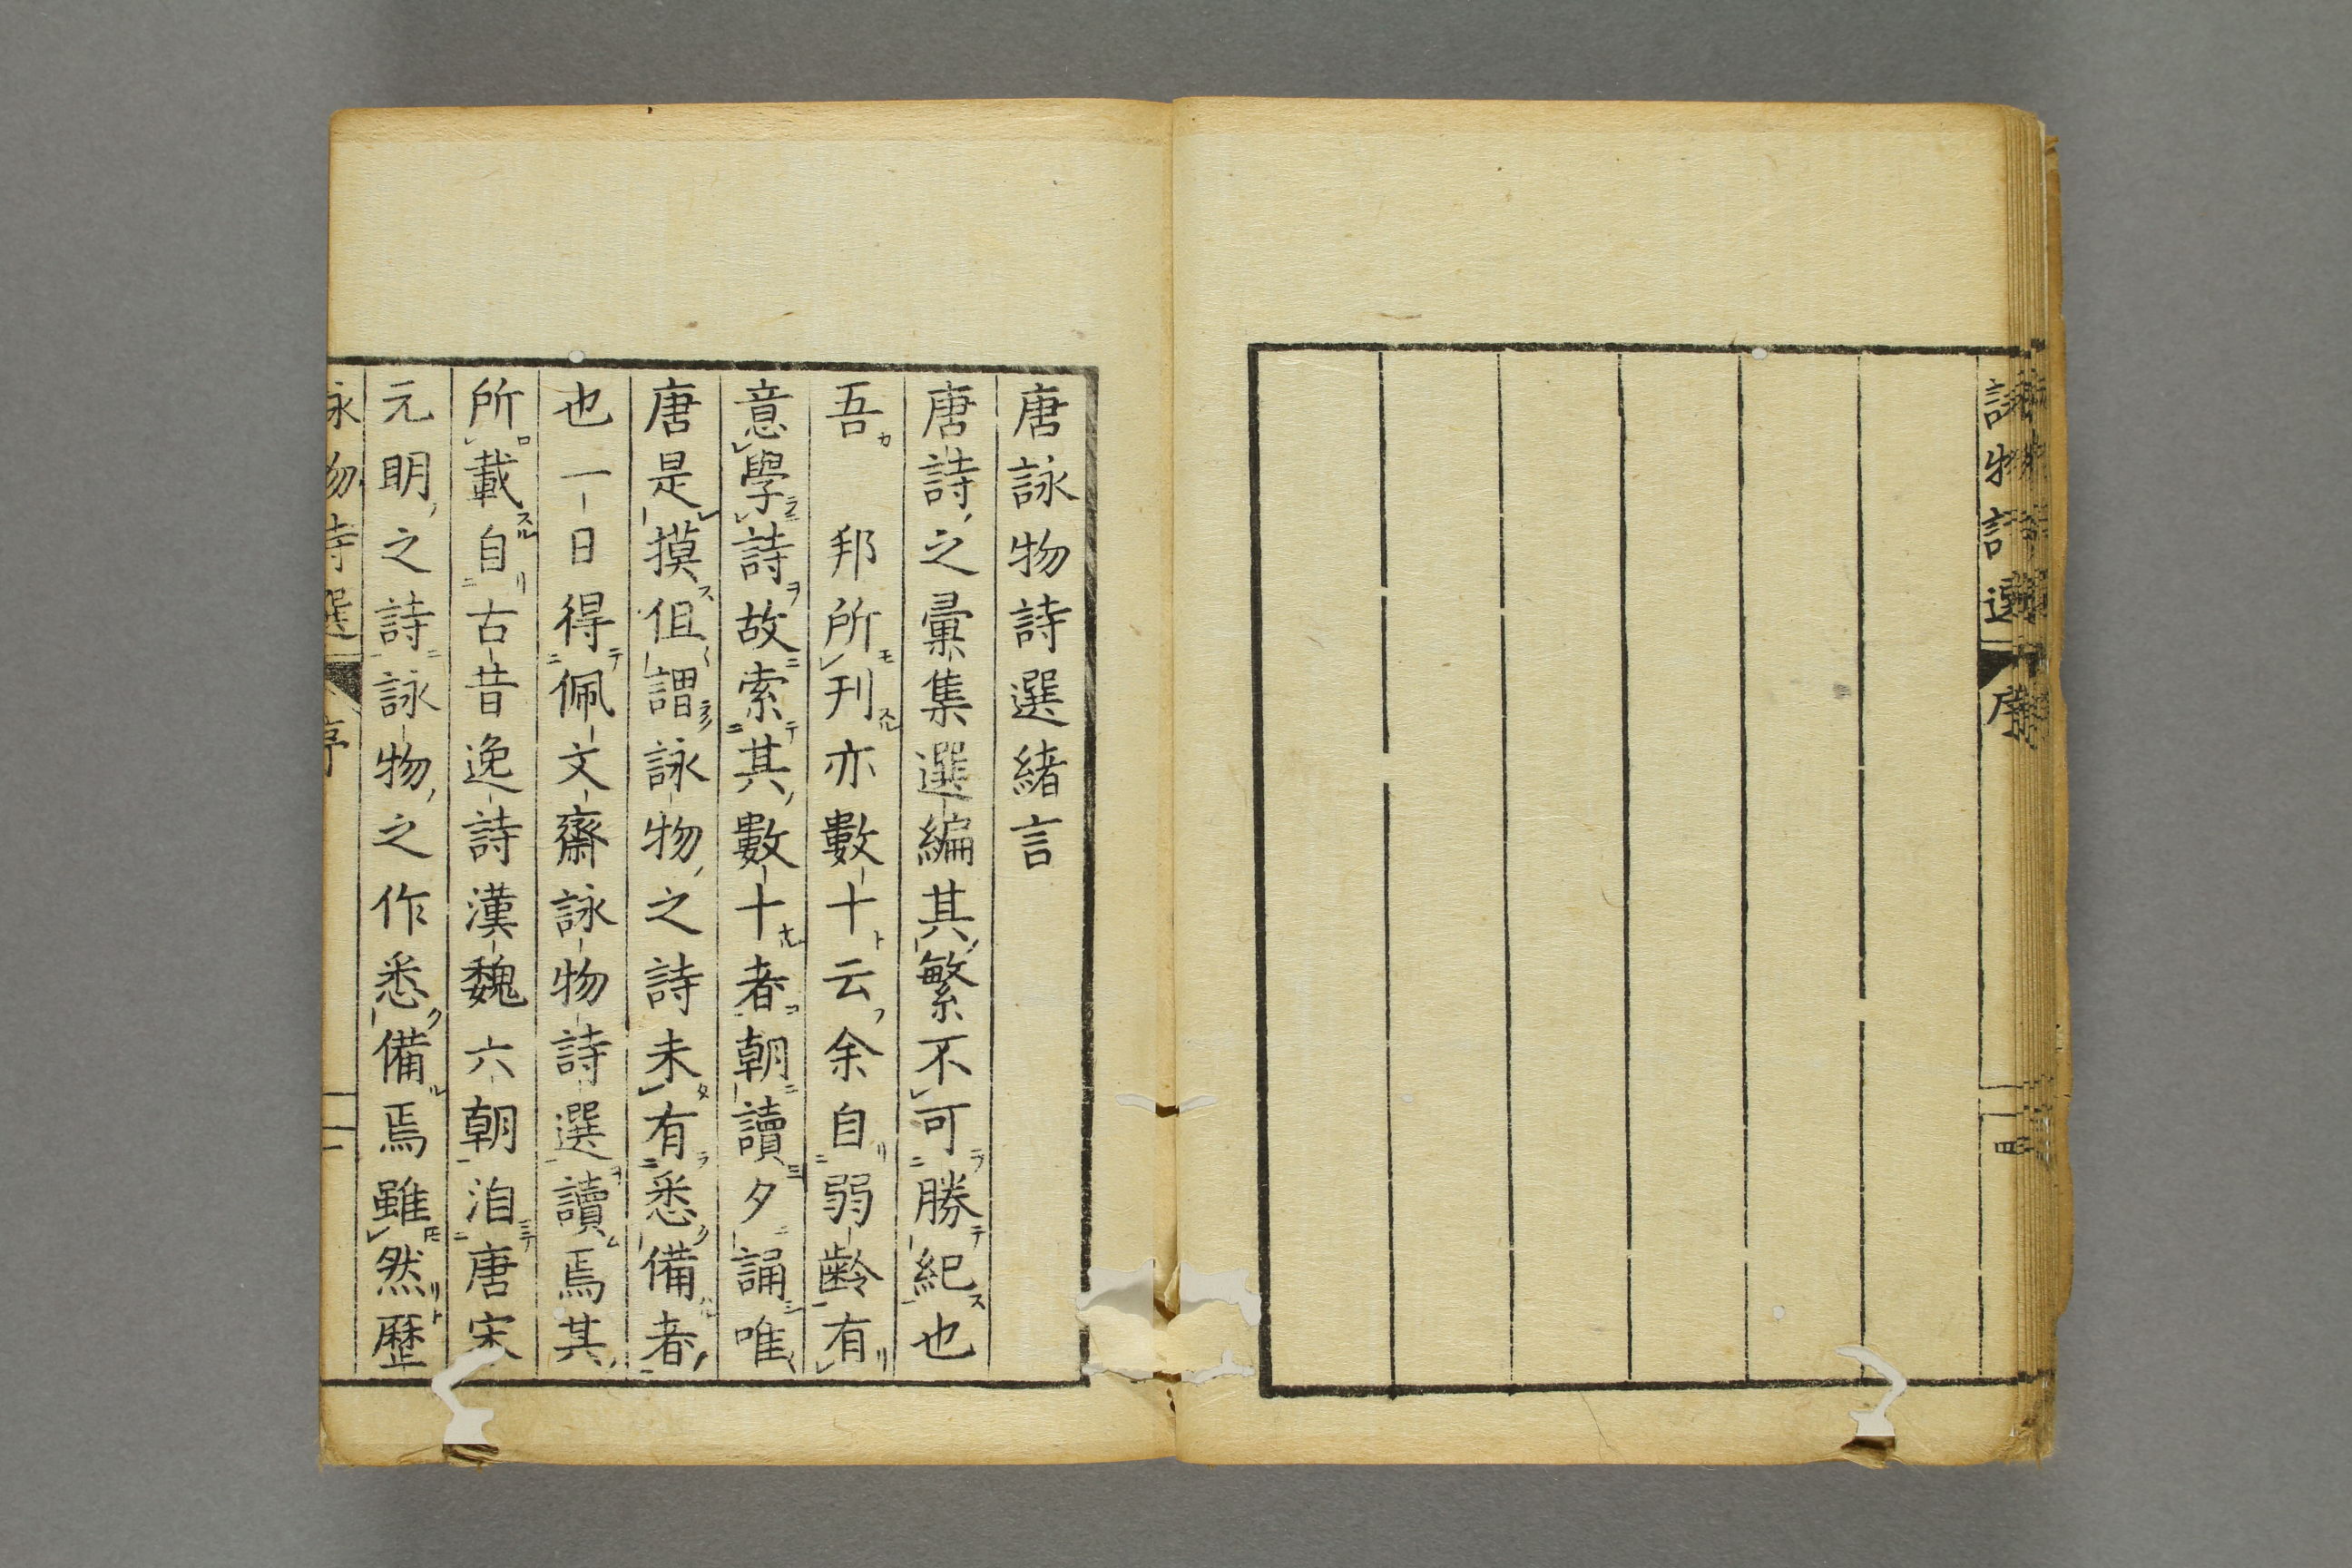 詠物詩選
序
四
唐詠物詩選緒言
唐詩之彙集選編其繁不可勝紀也
吾　邦所刊亦數十云余自弱齡有
意學詩故索其數十者朝讀夕誦唯
唐是摸但謂詠物之詩未有悉備者
也一日得佩文齋詠物詩選讀焉其
所載自古昔逸詩漢魏六朝洎唐宋
元明之詩詠物之作悉備焉雖然歷
詠物詩選
序